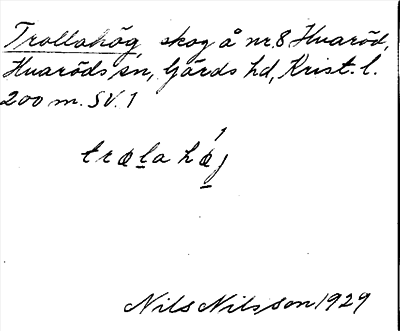 Trollahög, skog å nr 8 Huaröd,
Huaröds sn, Gärds hd, Krist. l.
200 m. SV. 1
træla hǿj
Nils Nilsson 1929